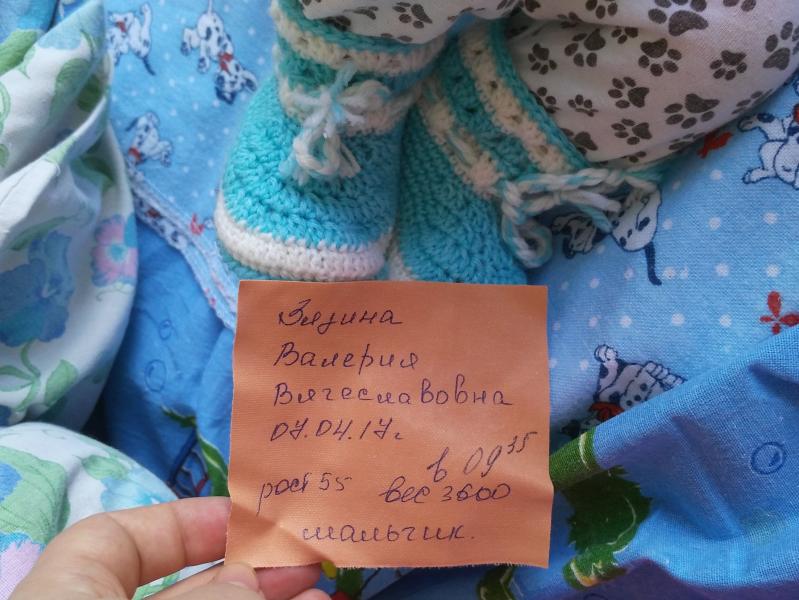 Зязина
Валерия
Вячеславовна
07.04.17г
в 09 35
рост 55 вес 3600
мальчик.